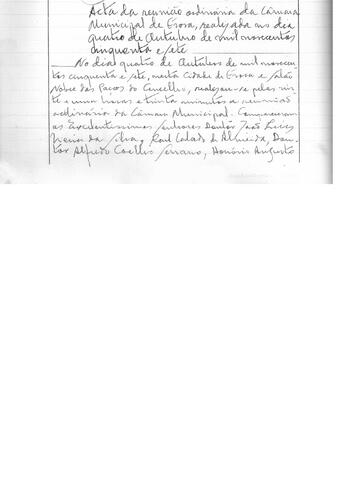 Acta da reunião ordinária da Câmara
Municipal de Evora, realizada aos dia
quatro de Outubro de mil novecentos
cinquenta e sete
No dia quatro de Outubro de mil novecen-
tos cinquenta e sete, nesta Cidade de Evora e salão
Nobre dos Paços do Concelho, realizou-se pelas vin-
te e uma horas e trinta minutos a reunião
ordinária da Câmara Municipal. Compareceram
os Excelentissimos senhores Doutor João Luis
Vieira da Silva, Raul Calado de Almeida, Dou-
tor Alfredo Coelho Serrano, Honório Augusto